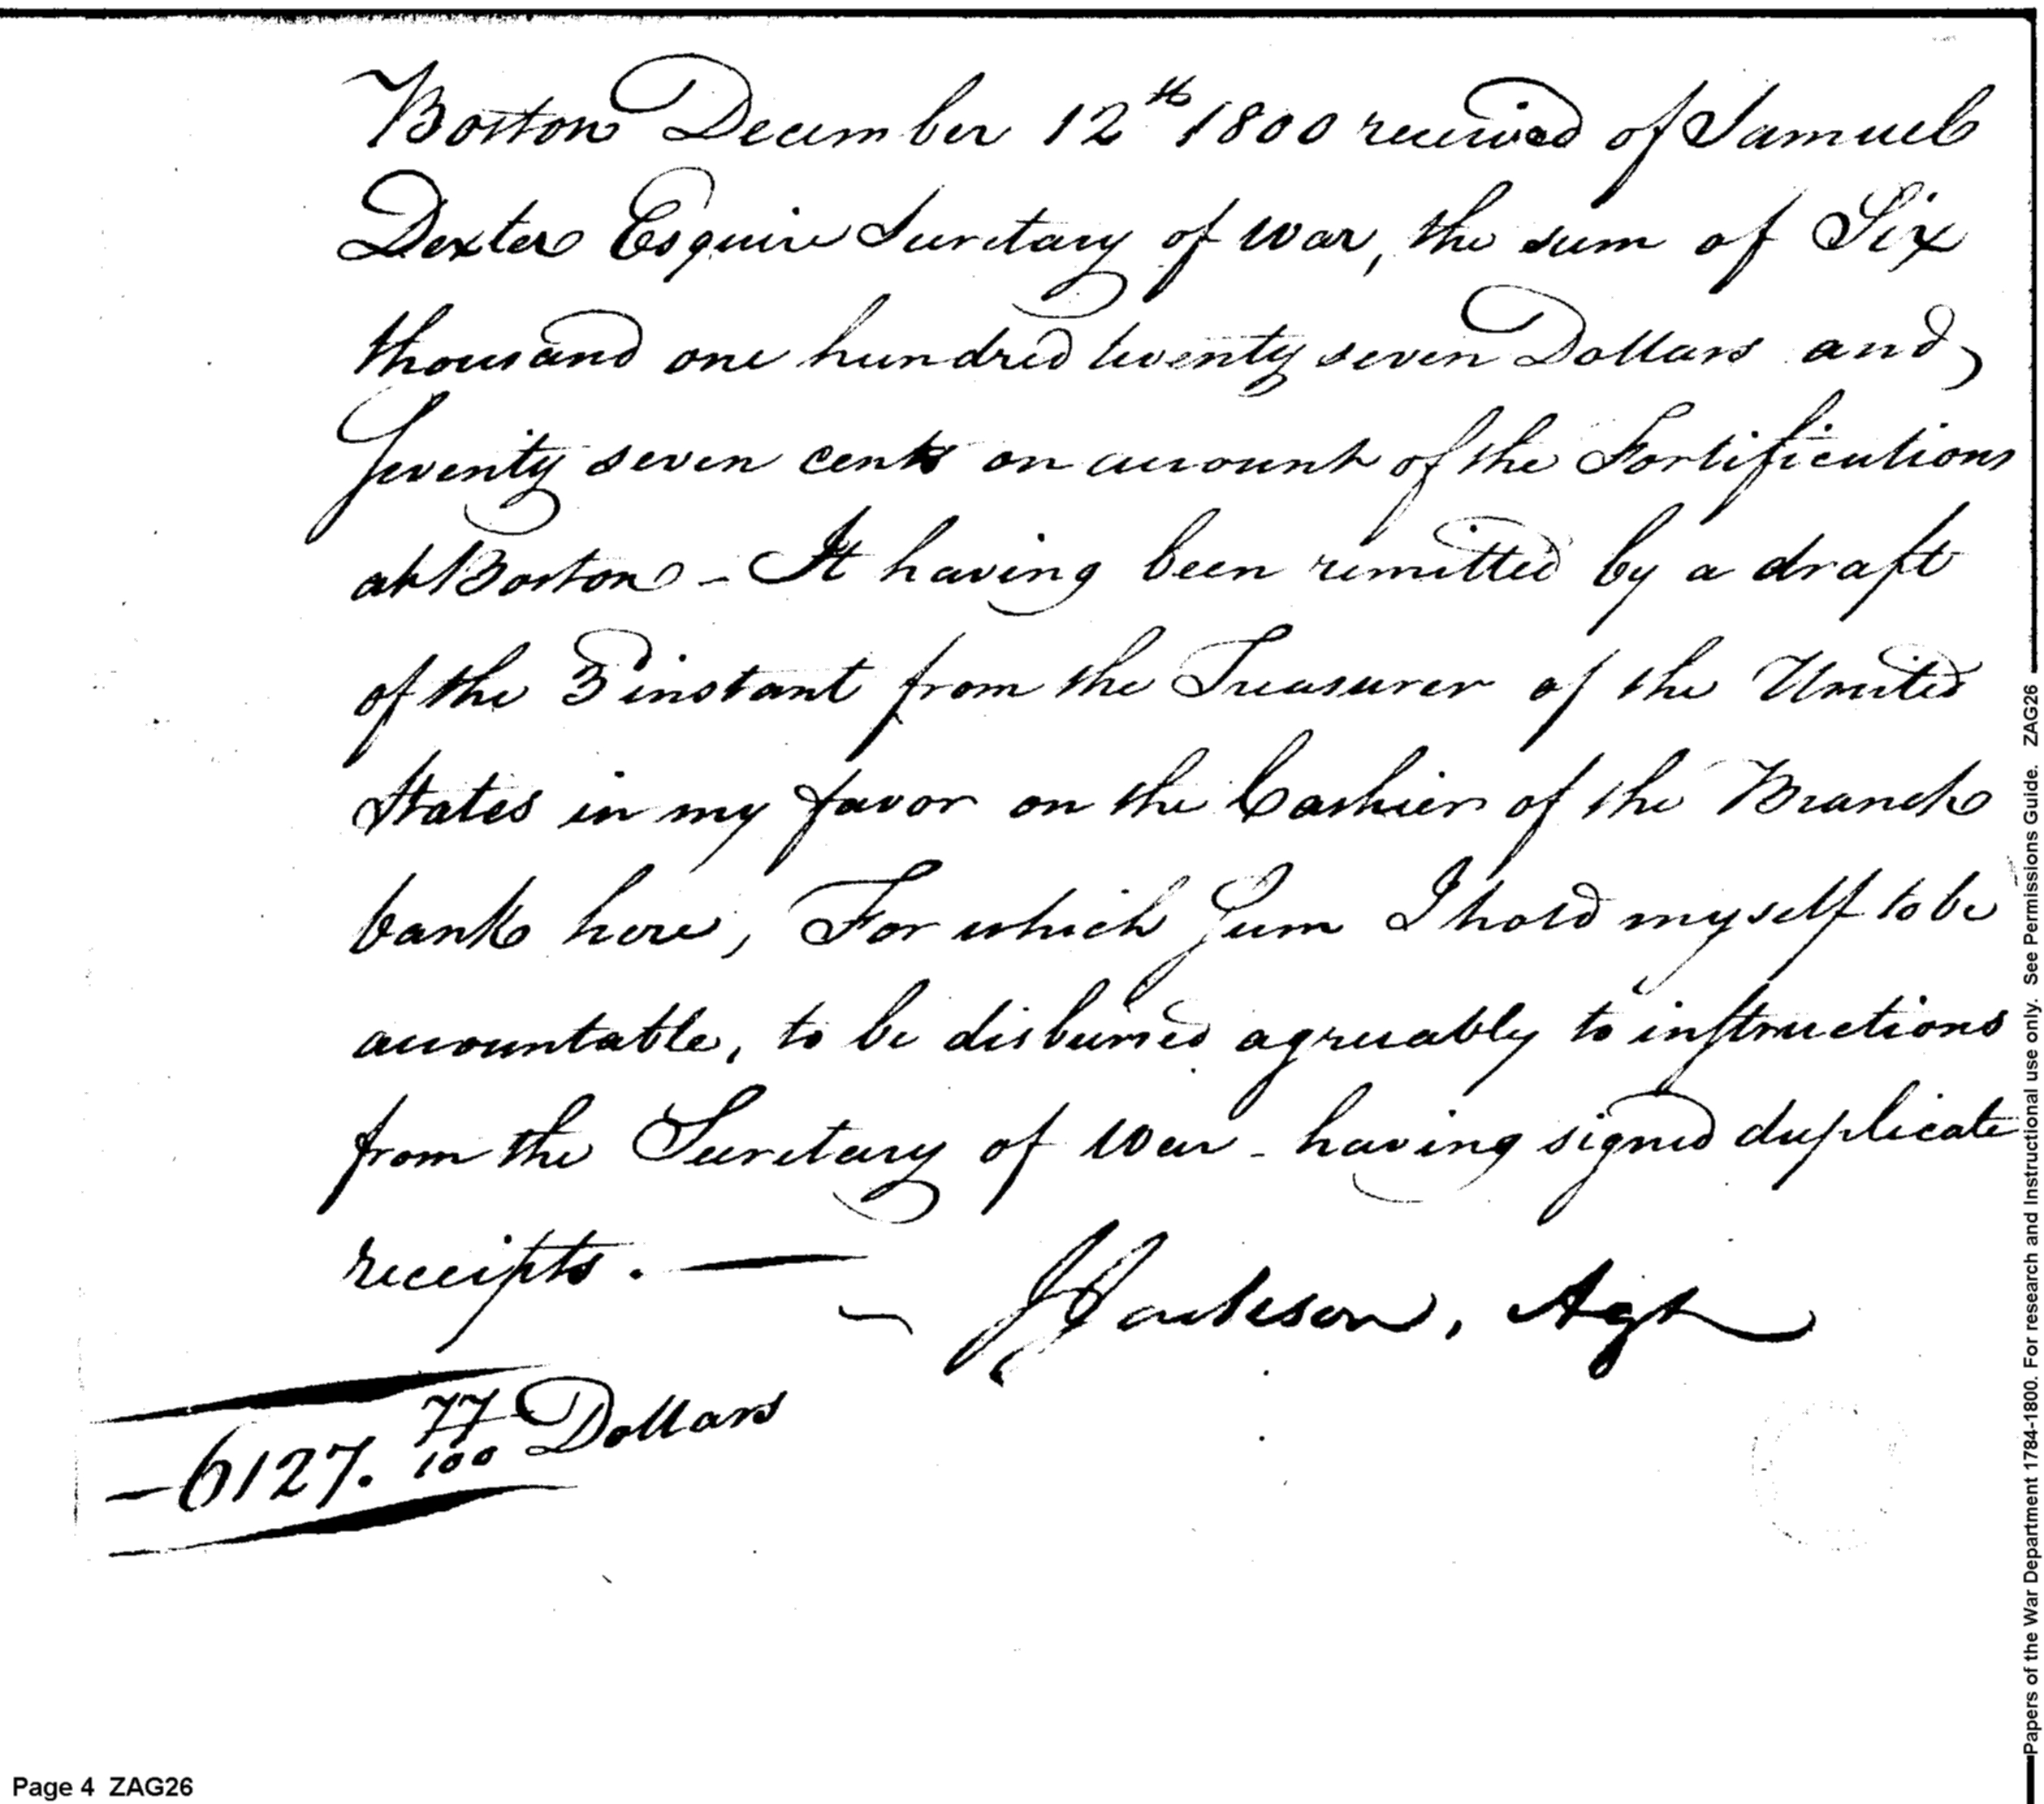 Boston December 12th 1800 received of Samuel
Dexter Esquire Secretary of War, the sum of Six
thousand one hundred twenty seven Dollars and
Seventy seven cents on account of the Fortifications
at Boston - It having been remitted by a draft
of the 3d instant from the Treasurer of the United
States in my favor on the Cashier of the Branch
bank here, For which Sum I hold myself to be
accountable, to be disbursed agreeably to instructions
from the Secretary of War - having signed duplicate
receipts. —
— J Jackson, Agt
— 6127. 77/100 Dollars
Page 4 ZAG26
Papers of the War Department 1784-1800. For research and Instructional use only. See Permissions Guide. ZAG26